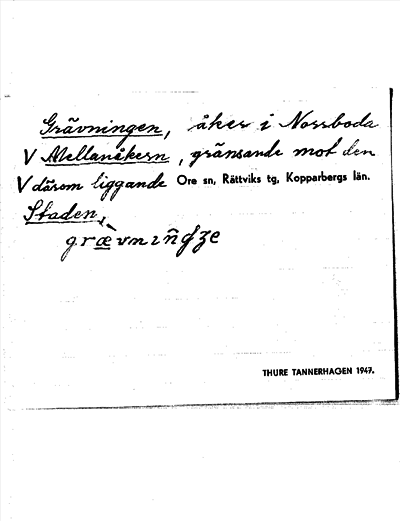 Grävningen, åker i Norrboda
V Mellanåkern, gränsande mot den
V därom liggande Ore sn, Rättviks tg, Kopparbergs län.
Staden.
THURE TANNERHAGEN 1947.